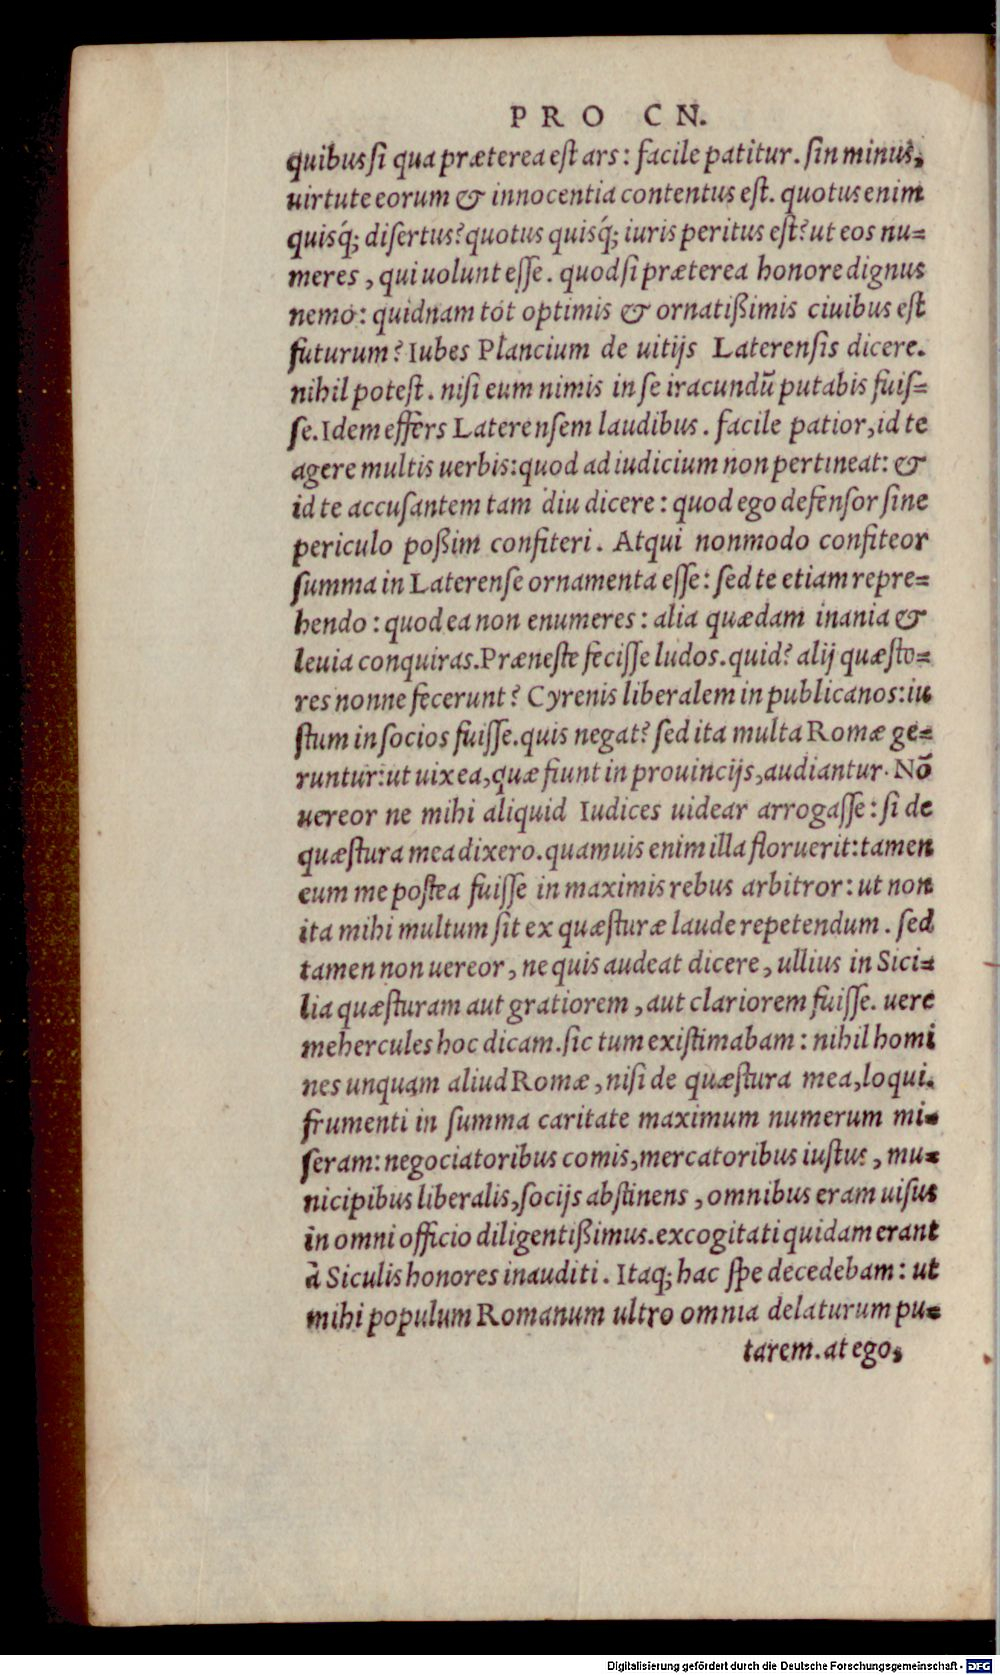 PRO CN.
quibus si qua præterea est ars: facile patitur. sin minus,
uirtute eorum & innocentia contentus est. quotus enim
quisq́; disertus? quotus quisq́; iuris peritus est? ut eos nu=
meres, qui uolunt esse. quod si præterea honore dignus
nemo: quidnam tot optimis & ornatißimis ciuibus est
futurum? Iubes Plancium de uitijs Laterensis dicere.
nihil potest. nisi eum nimis in se iracundū putabis fuis=
se. Idem effers Laterensem laudibus. facile patior, id te
agere multis uerbis: quod ad iudicium non pertineat: &
id te accusantem tam diu dicere: quod ego defensor sine
periculo poßim confiteri. Atqui nonmodo confiteor
summa in Laterense ornamenta esse: sed te etiam repre=
hendo: quod ea non enumeres: alia quædam inania &
leuia conquiras. Præneste fecisse ludos. quid? alij quæsto=
res nonne fecerunt? Cyrenis liberalem in publicanos: iu
stum in socios fuisse. quis negat? sed ita multa Romæ ge=
runtur: ut uix ea, quæ fiunt in prouincijs, audiantur. Nō
uereor ne mihi aliquid Iudices uidear arrogasse: si de
quæstura mea dixero. quamuis enim illa floruerit: tamen
eum me postea fuisse in maximis rebus arbitror: ut non
ita mihi multum sit ex quæsturæ laude repetendum. sed
tamen non uereor, ne quis audeat dicere, ullius in Sici=
lia quæsturam aut gratiorem, aut clariorem fuisse. uere
mehercules hoc dicam. sic tum existimabam: nihil homi
nes unquam aliud Romæ, nisi de quæstura mea, loqui.
frumenti in summa caritate maximum numerum mi=
seram: negociatoribus comis, mercatoribus iustus, mu=
nicipibus liberalis, socijs abstinens, omnibus eram uisus
in omni officio diligentißimus. excogitati quidam erant
à Siculis honores inauditi. Itaq; hac spe decedebam: ut
mihi populum Romanum ultro omnia delaturum pu=
tarem. at ego,
Digitalisierung gefördert durch die Deutsche Forschungsgemeinschaft - DFG